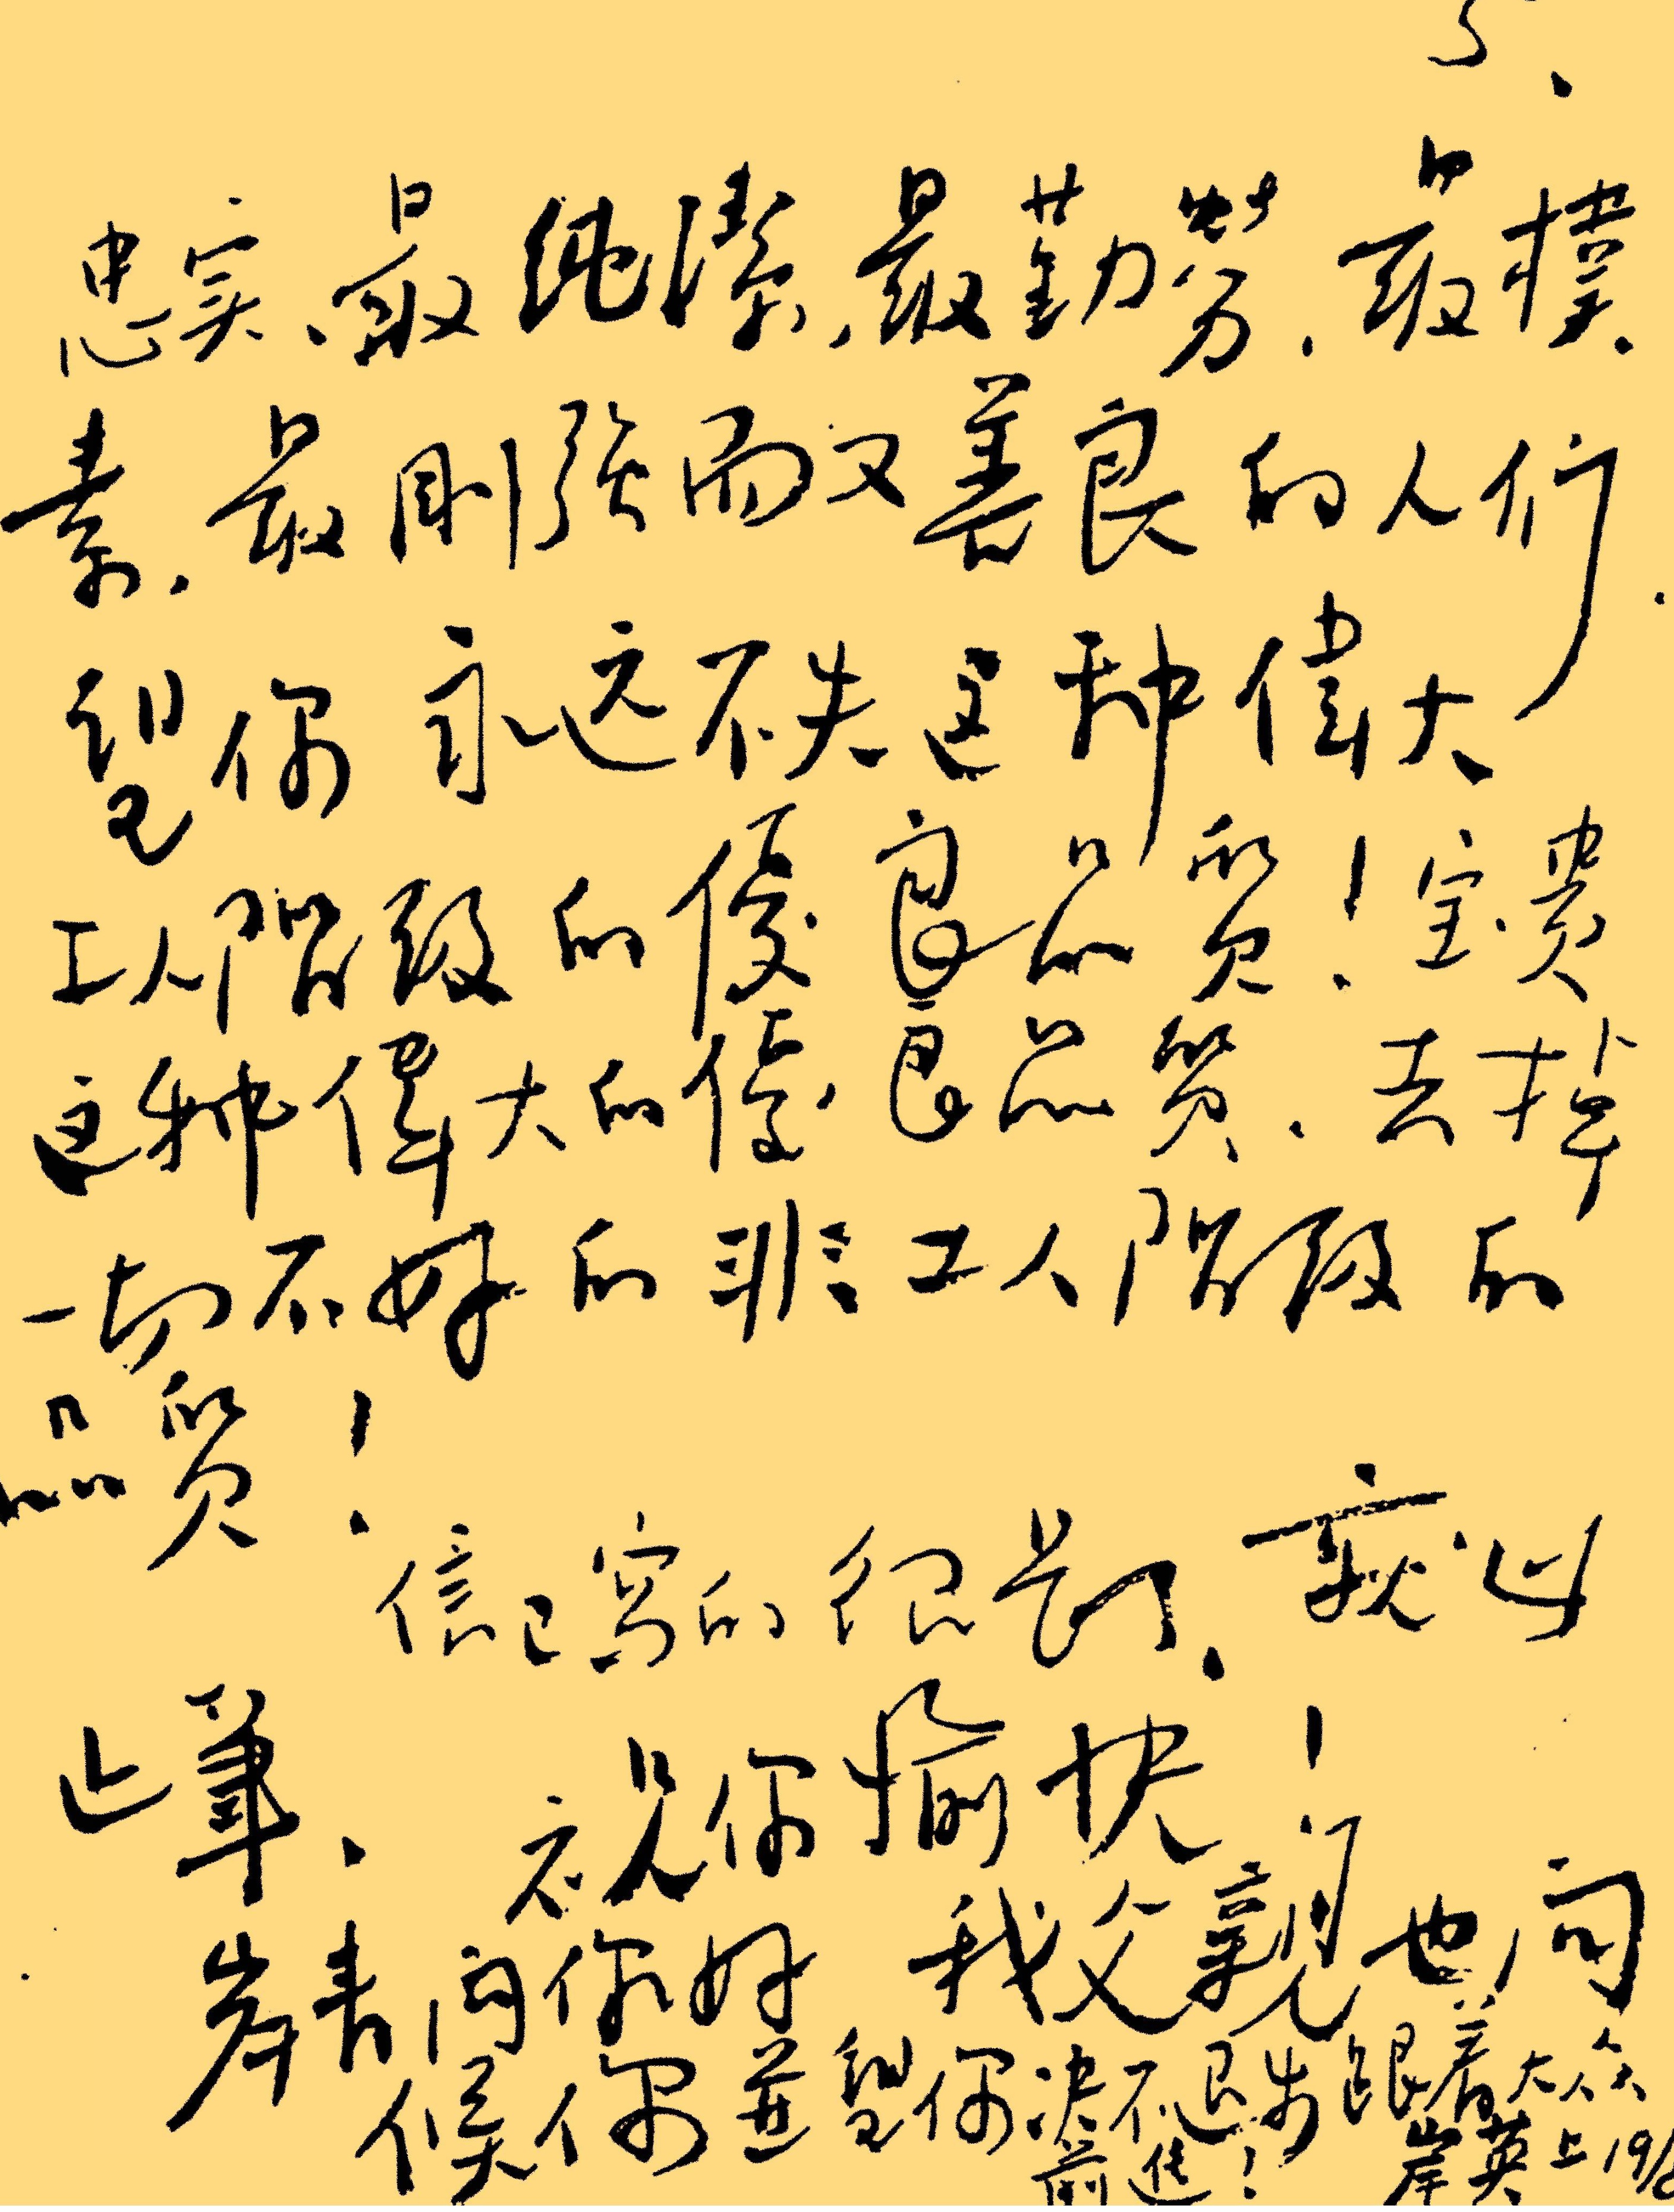 忠实、最純潔、最勤勞、最樸
素、最刚强而又善良的人们、
望你永远不失这种偉大
工人階级的優良品质！宝贵
这种偉大的優良品质、去掉
一切不好的非工人階级的
品质！
信已寫的很長、就此
止筆、
祝你愉快！
岸青问你好 我父親也向
候你並望你决不退步跟着大众
前進！
岸英上 19/